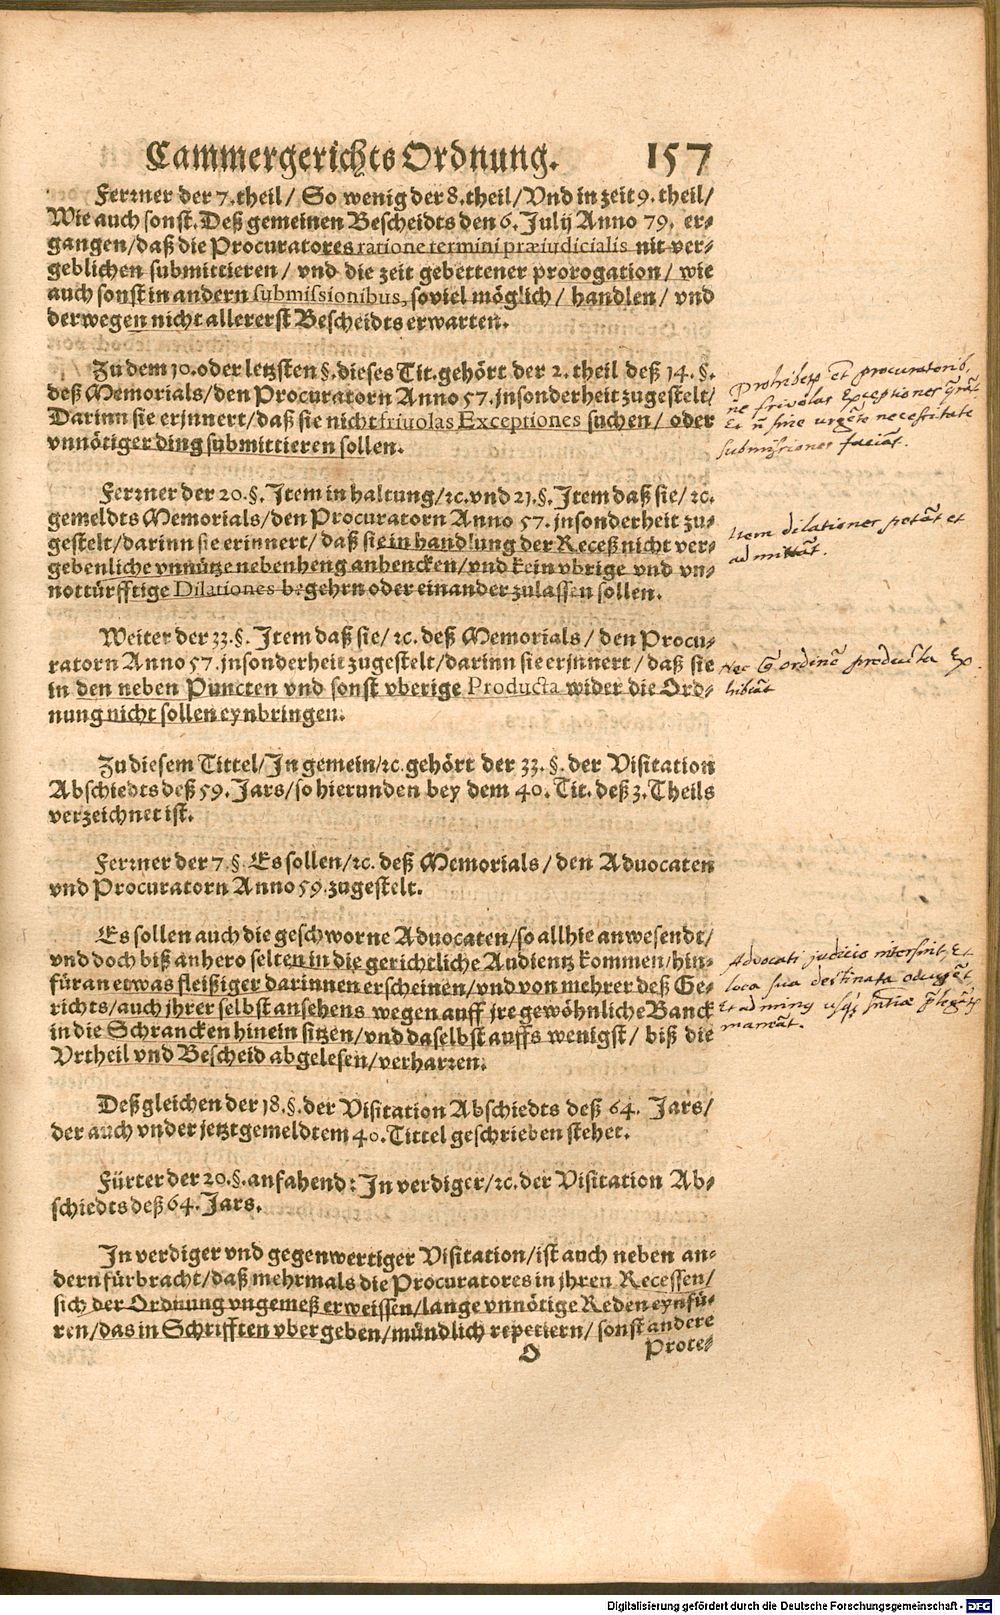 Cammergerichts Ordnung. 157
Ferꝛner der 7. theil / So wenig der 8. theil / Vnd in zeit 9. theil /
Wie auch sonst. Deß gemeinen Bescheidts den 6. Julij Anno 79. er⸗
gangen / daß die Procuratores ratione termini præiudicialis nit ver⸗
geblichen submittieren / vnd die zeit gebettener prorogation / wie
auch sonst in andern submissionibus, soviel möglich / handlen / vnd
derwegen nicht allererst Bescheidts erwarten.
Zu dem 10. oder letzsten §. dieses Tit. gehört der 2. theil deß 14. §.
deß Memorials / den Procuratorn Anno 57. jnsonderheit zugestelt /
Darinn sie erjnnert / daß sie nicht friuolas Exceptiones suchen / oder
vnnötiger ding submittieren sollen.
Ferꝛner der 20. §. Jtem in haltung / ꝛc. vnd 21. §. Jtem daß sie / ꝛc.
gemeldts Memorials / den Procuratorn Anno 57. jnsonderheit zu⸗
gestelt / darinn sie erinnert / daß sie in handlung der Receß nicht ver⸗
gebenliche vnnütze nebenheng anhencken / vnd kein vbrige vnd vn⸗
nottürfftige Dilationes begehrn oder einander zulassen sollen.
Weiter der 33. §. Jtem daß sie / ꝛc. deß Memorials / den Procu⸗
ratorn Anno 57. jnsonderheit zugestelt / darinn sie erjnnert / daß sie
in den neben Puncten vnd sonst vberige Producta wider die Ord⸗
nung nicht sollen eynbringen.
Zu diesem Tittel / Jn gemein / ꝛc. gehört der 33. §. der Visitation
Abschiedts deß 59. Jars / so hierunden bey dem 40. Tit. deß 3. Theils
verzeichnet ist.
Ferꝛner der 7. § Es sollen / ꝛc. deß Memorials / den Aduocaten
vnd Procuratorn Anno 59. zugestelt.
Es sollen auch die geschworne Aduocaten / so allhie anwesendt /
vnd doch biß anhero selten in die gerichtliche Audientz kommen / hin⸗
füran etwas fleißiger darinnen erscheinen / vnd von mehrer deß Ge⸗
richts / auch jhrer selbst ansehens wegen auff jre gewöhnliche Banck
in die Schrancken hinein sitzen / vnd daselbst auffs wenigst / biß die
Vrtheil vnd Bescheid abgelesen / verharꝛen.
Deßgleichen der 18. §. der Visitation Abschiedts deß 64. Jars /
der auch vnder jetztgemeldtem 40. Tittel geschrieben stehet.
Fürter der 20. §. anfahend: Jn verdiger / ꝛc. der Visitation Ab⸗
schiedts deß 64. Jars.
Jn verdiger vnd gegenwertiger Visitation / ist auch neben an⸗
dern fürbracht / daß mehrmals die Procuratores in jhren Recessen /
sich der Ordnung vngemeß erweissen / lange vnnötige Reden eynfü⸗
ren / das in Schrifften vbergeben / mündlich repetiern / sonst andere
O Prote⸗
et procuratorib,
ne frivolas Exceptiones
sine necessitate
submissiones faciāt.
Item dilationes petāt et
admittāt.
Nec ordinē producta Ex
hibeāt
Advocati judicio intersint, Et
loca sua destinata
maneāt.
Digitalisierung gefördert durch die Deutsche Forschungsgemeinschaft - DFG